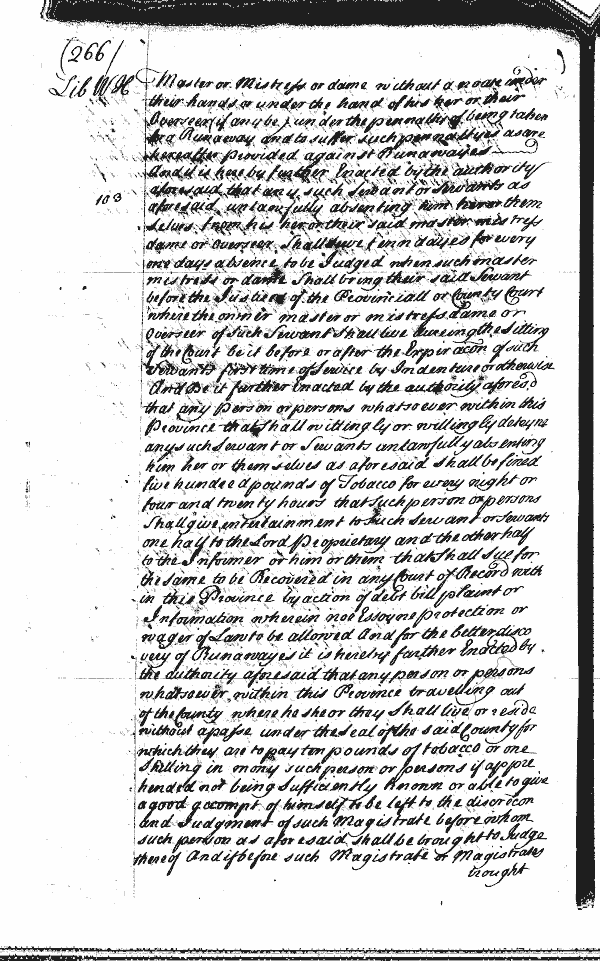 (266)
Lib W H
Master or Mistress or dame without a noate under
their hands or under the hand of his her or their
Overseer (if any be) under the pennalty of being taken
for a Runaway and to suffer such pennaltyes as are
hereafter Provided against Runawayes
And it is hereby further Enacted by the authority
103
aforesaid that any such Servant or Servants as
aforesaid unlawfully absenting him her or them
selves from his her or their said master mistress
dame or Overseer Shall serve tenn dayes for every
one dayes absence to be Judged when such master
mistress or dame Shall bring their said Servant
before the Justices of the Provinciall or County Court
where the owner master or mistress dame or
Overseer of such Servant Shall live dureing the Sitting
of the Court be it before or after the Expiracon of such
Servants first time of Service by Indenture or otherwise
And Be it further Enacted by the authority aforesd
that any Person or persons whatsoever within this
Province that Shall wittingly or willingly deteyne
any such Servant or Servants unlawfully absenting
him her or themselves as aforesaid Shall be fined
five hundred pounds of Tobacco for every night or
four and twenty hours that such person or persons
Shall give entertainment to such Servant or Servants
one half to the Lord Proprietary and the other half
to the Informer or him or them that Shall sue for
the same to be Recovered in any Court of Record with
in this Province by action of debt bill plaint or
Information wherein noe Essoyne protection or
wager of Law to be allowed And for the better disco
very of Runawayes it is hereby further Enacted by
the authority aforesaid that any person or persons
whatsoever within this Province travelling out
of the County where he she or they Shall live or reside
without a passe under the Seal of the said County for
which they are to pay ten pounds of tobacco or one
Shilling in mony such person or persons if appre
hended not being Sufficiently known or able to give
a good accompt of himself to be left to the discrecon
and Judgment of such Magistrate before whom
such person as aforesaid shall be brought to Judge
thereof And if before such Magistrate or Magistrates
brought